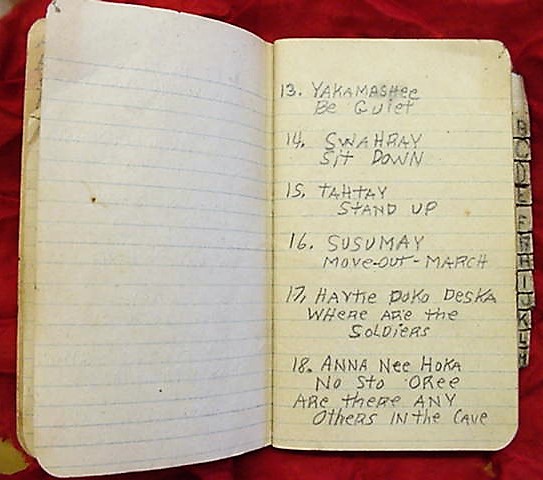 13. YAKAMASHee
Be Quiet
14. SWAHRAY
Sit DOWN
15. TAHTAY
STAND UP
16. SUSUMAY
MOVE-OUT-MARCH
17. HAYTIE DOKO DESKA
WHeRe ARe the
SOLDIeRS
18. ANNA Nee HOKA
NO StO ORee
ARe theRe ANY
OtheRS IN the CAVe